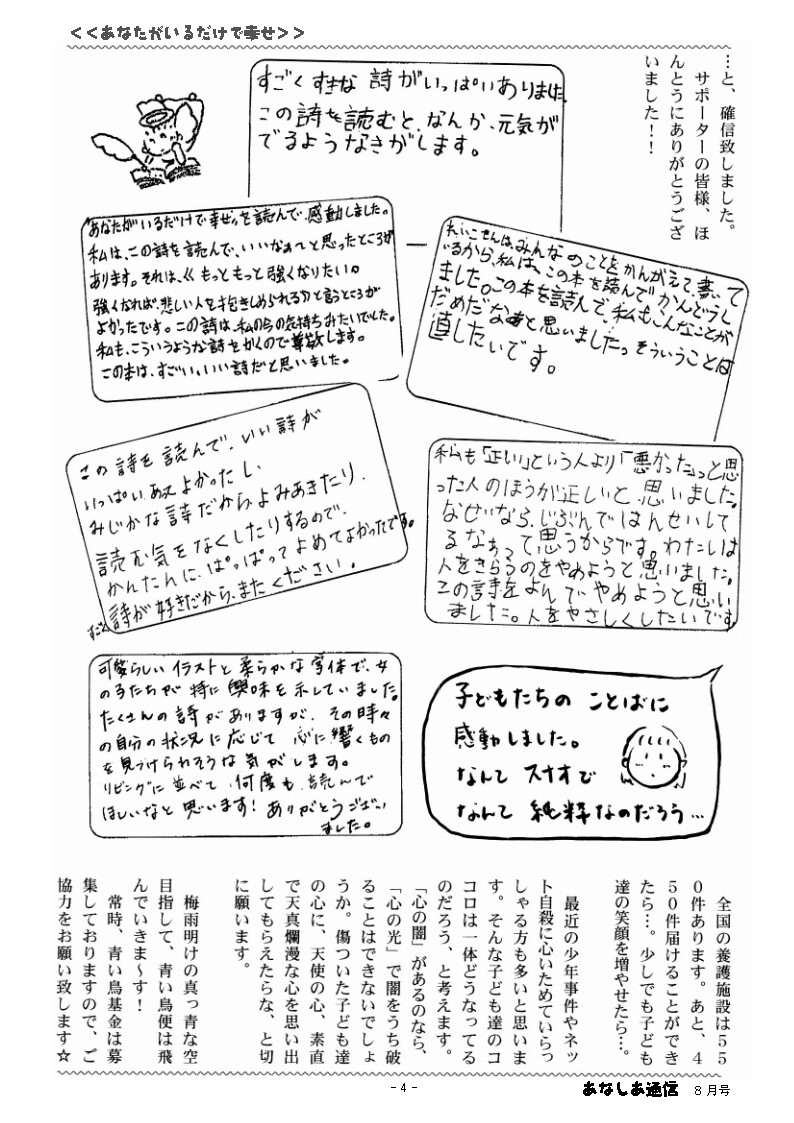 <<あなたがいるだけで幸せ>>
…と、確信致しました。
サポーターの皆様、ほ
んとうにありがとうござ
いました！！
すごくすきな 詩がいっぱいありました。
この詩を読むと、なんか、元気が
でるようなきがします。
あなたがいるだけで幸せ〟を読んで、感動しました。
私は、この詩を読んで、いいなぁ〜と思ったところが
あります。それは、≪もっともっと強くなりたい。
強くなれば、悲しい人を抱きしめられる≫と言うところが
よかったです。この詩は、私の今の気持ちみたいでした。
私も、こういうような詩をかくので尊敬します。
この本は、すごい、いい詩だと思いました。
れいこさんは、みんなのことをかんがえて、書いて
いるから、私は、この本を読んでかんどうし
ました。この本を読んで、私もこんなことが
だめだなぁと思いました。そういうことは
直したいです。
この詩を読んで、いい詩が
いっぱいあってよかったし、
みじかな詩だから、よみあきたり、
読む気をなくしたりするので、
かんたんに、ぱっぱってよめてよかったです。
すごく詩が好きだから、またください。
私も「正しい」という人より「悪かった」っと思
った人のほうが正しいと思いました。
なぜなら、じぶんではんせいして
るなぁって思うからです。わたしは
人をきらうのをやめようと思いました。
この詩をよんでやめようと思い
ました。人をやさしくしたいです。
可愛らしいイラストと柔らかな字体で、女
の子たちが特に興味を示していました。
たくさんの詩がありますが、その時々
の自分の状況に応じて 心に響くもの
を見つけられそうな気がします。
リビングに並べて、何度も、読んで
ほしいなと思います！ありがとうござい
ました。
子どもたちの ことばに
感動しました。
なんて スナオで
なんて 純粋なのだろう…
全国の養護施設は５５
０件あります。あと、４
５０件届けることができ
たら…。少しでも子ども
達の笑顔を増やせたら…。
最近の少年事件やネッ
ト自殺に心いためていらっ
しゃる方も多いと思いま
す。そんな子ども達のコ
コロは一体どうなってる
のだろう、と考えます。
「心の闇」があるのなら、
「心の光」で闇をうち破
ることはできないでしょ
うか。傷ついた子ども達
の心に、天使の心、素直
で天真爛漫な心を思い出
してもらえたらな、と切
に願います。
梅雨明けの真っ青な空
目指して、青い鳥便は飛
んでいきま〜す！
常時、青い鳥基金は募
集しておりますので、ご
協力をお願い致します☆
- 4 -
あなしあ通信 ８月号